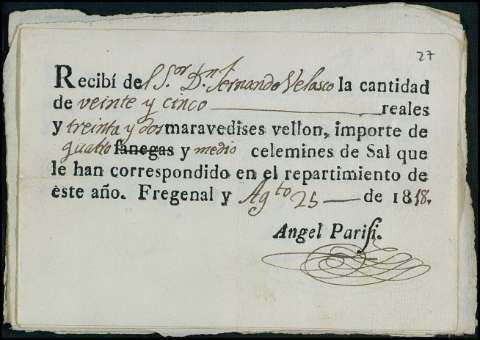 27
Recibí del S.or D.n Fernando Velasco la cantidad
de veinte y cinco reales
y treinta y dos maravedises vellon, importe de
quatro fanegas y medio celemines de Sal que
le han correspondido en el repartimiento de
este año. Fregenal y Ag.to 25 de 1818.
Angel Parisi.